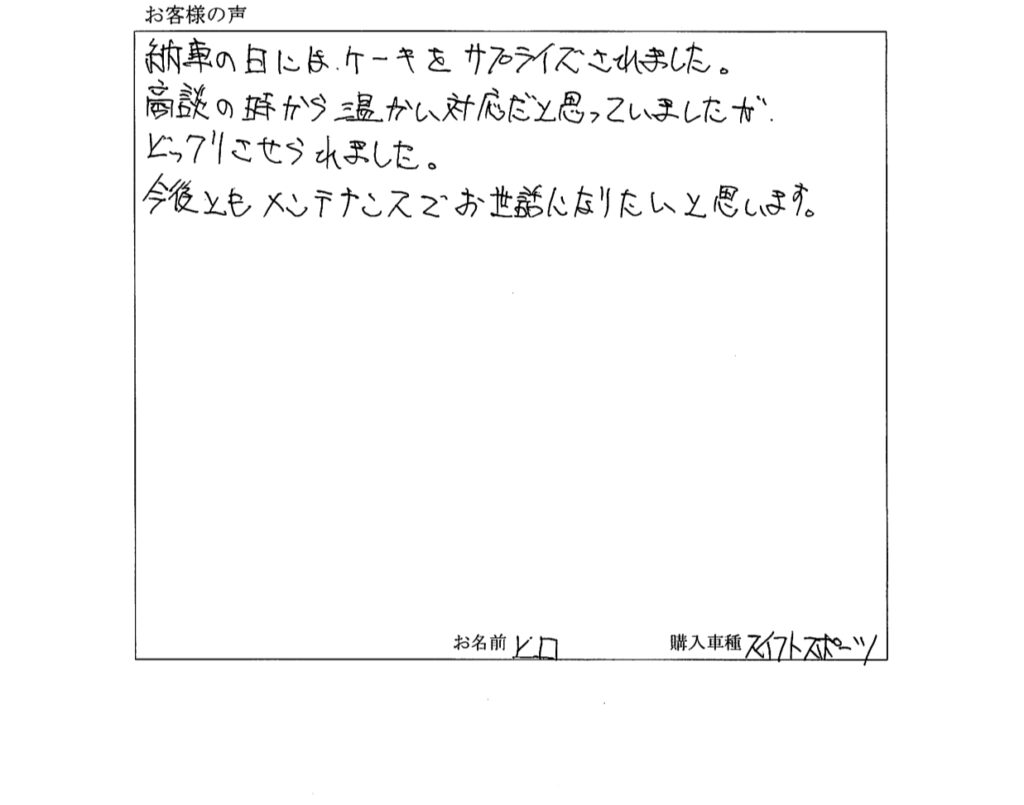 お客様の声
納車の日には、ケーキをサプライズされました。
商談の時から温かい対応だと思っていましたが、
ビックリさせられました。
今後ともメンテナンスでお世話になりたいと思います。
お名前 ヒロ 購入車種 スイフトスポーツ